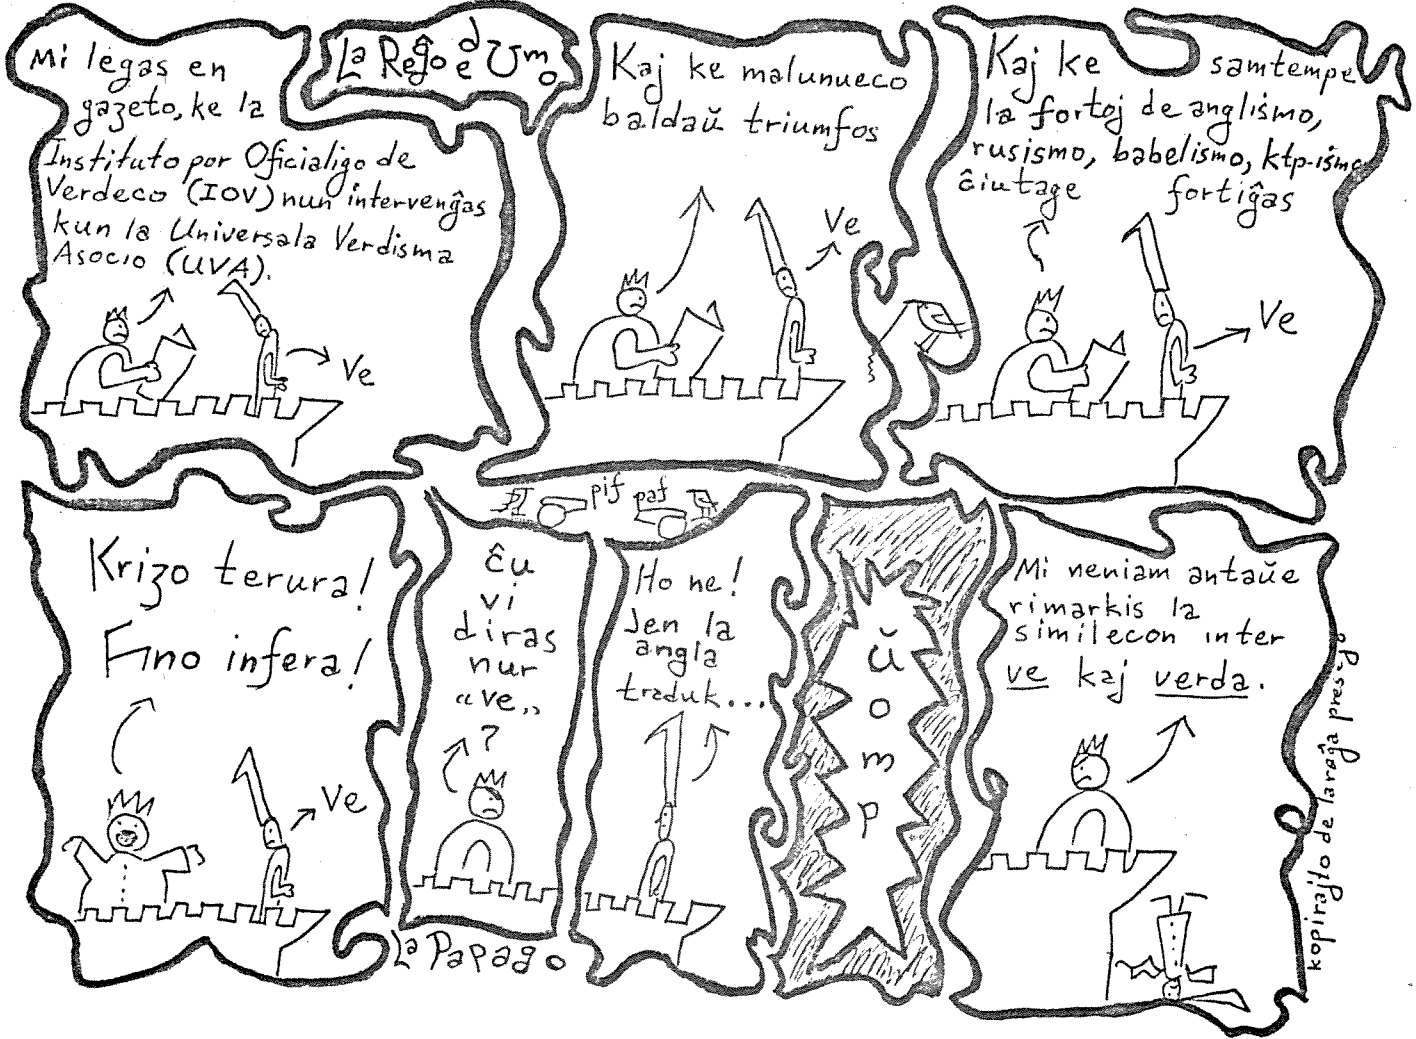 La Reĝo de Umo
Mi legas en
gazeto, ke la
Instituto por Oficialigo de
Verdeco (IOV) nun intervenĝas
kun la Universala Verdisma
Asocio (UVA).
Ve
Kaj ke malunueco
baldaŭ triumfos
Ve
Kaj ke samtempe
la fortoj de angliŝmo,
rusismo, babelismo, ktp-iŝmo
ĉiutage fortiĝas
Ve
Krizo terura!
Fino infera!
Ve
pif paf
ĉu
vi
diras
nur
“ve„
?
Ho ne!
Jen la
angla
traduk...
ŭ
o
m
p
Mi neniam antaŭe
rimarkis la
similecon inter
ve kaj verda.
La Papago
kopirajto de laraĝa pres-ĝo